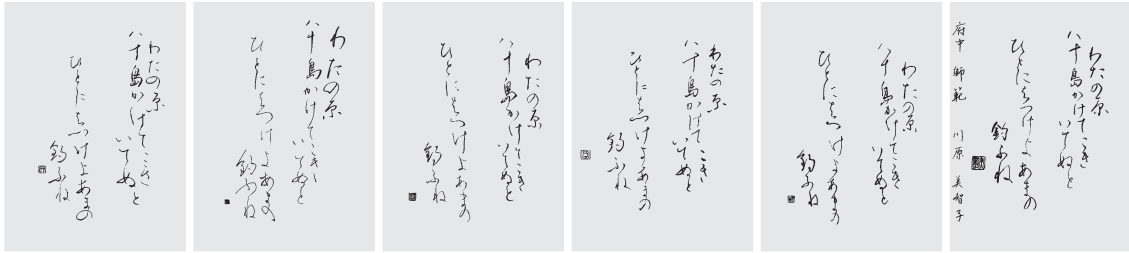 わたの原
八十島かけてこき
いてぬと
ひとにはつけよあまの
釣ふね
府中 師範 川原 美智子
わたの原
八十島かけてこき
いてぬと
ひとにはつけよあまの
釣ふね
わたの原
八十島かけてこき
いてぬと
ひとにはつけよあまの
釣ふね
わたの原
八十島かけてこき
いてぬと
ひとにはつけよあまの
釣ふね
わたの原
八十島かけてこき
いてぬと
ひとにはつけよあまの
釣ふね
わたの原
八十島かけてこき
いてぬと
ひとにはつけよあまの
釣ふね